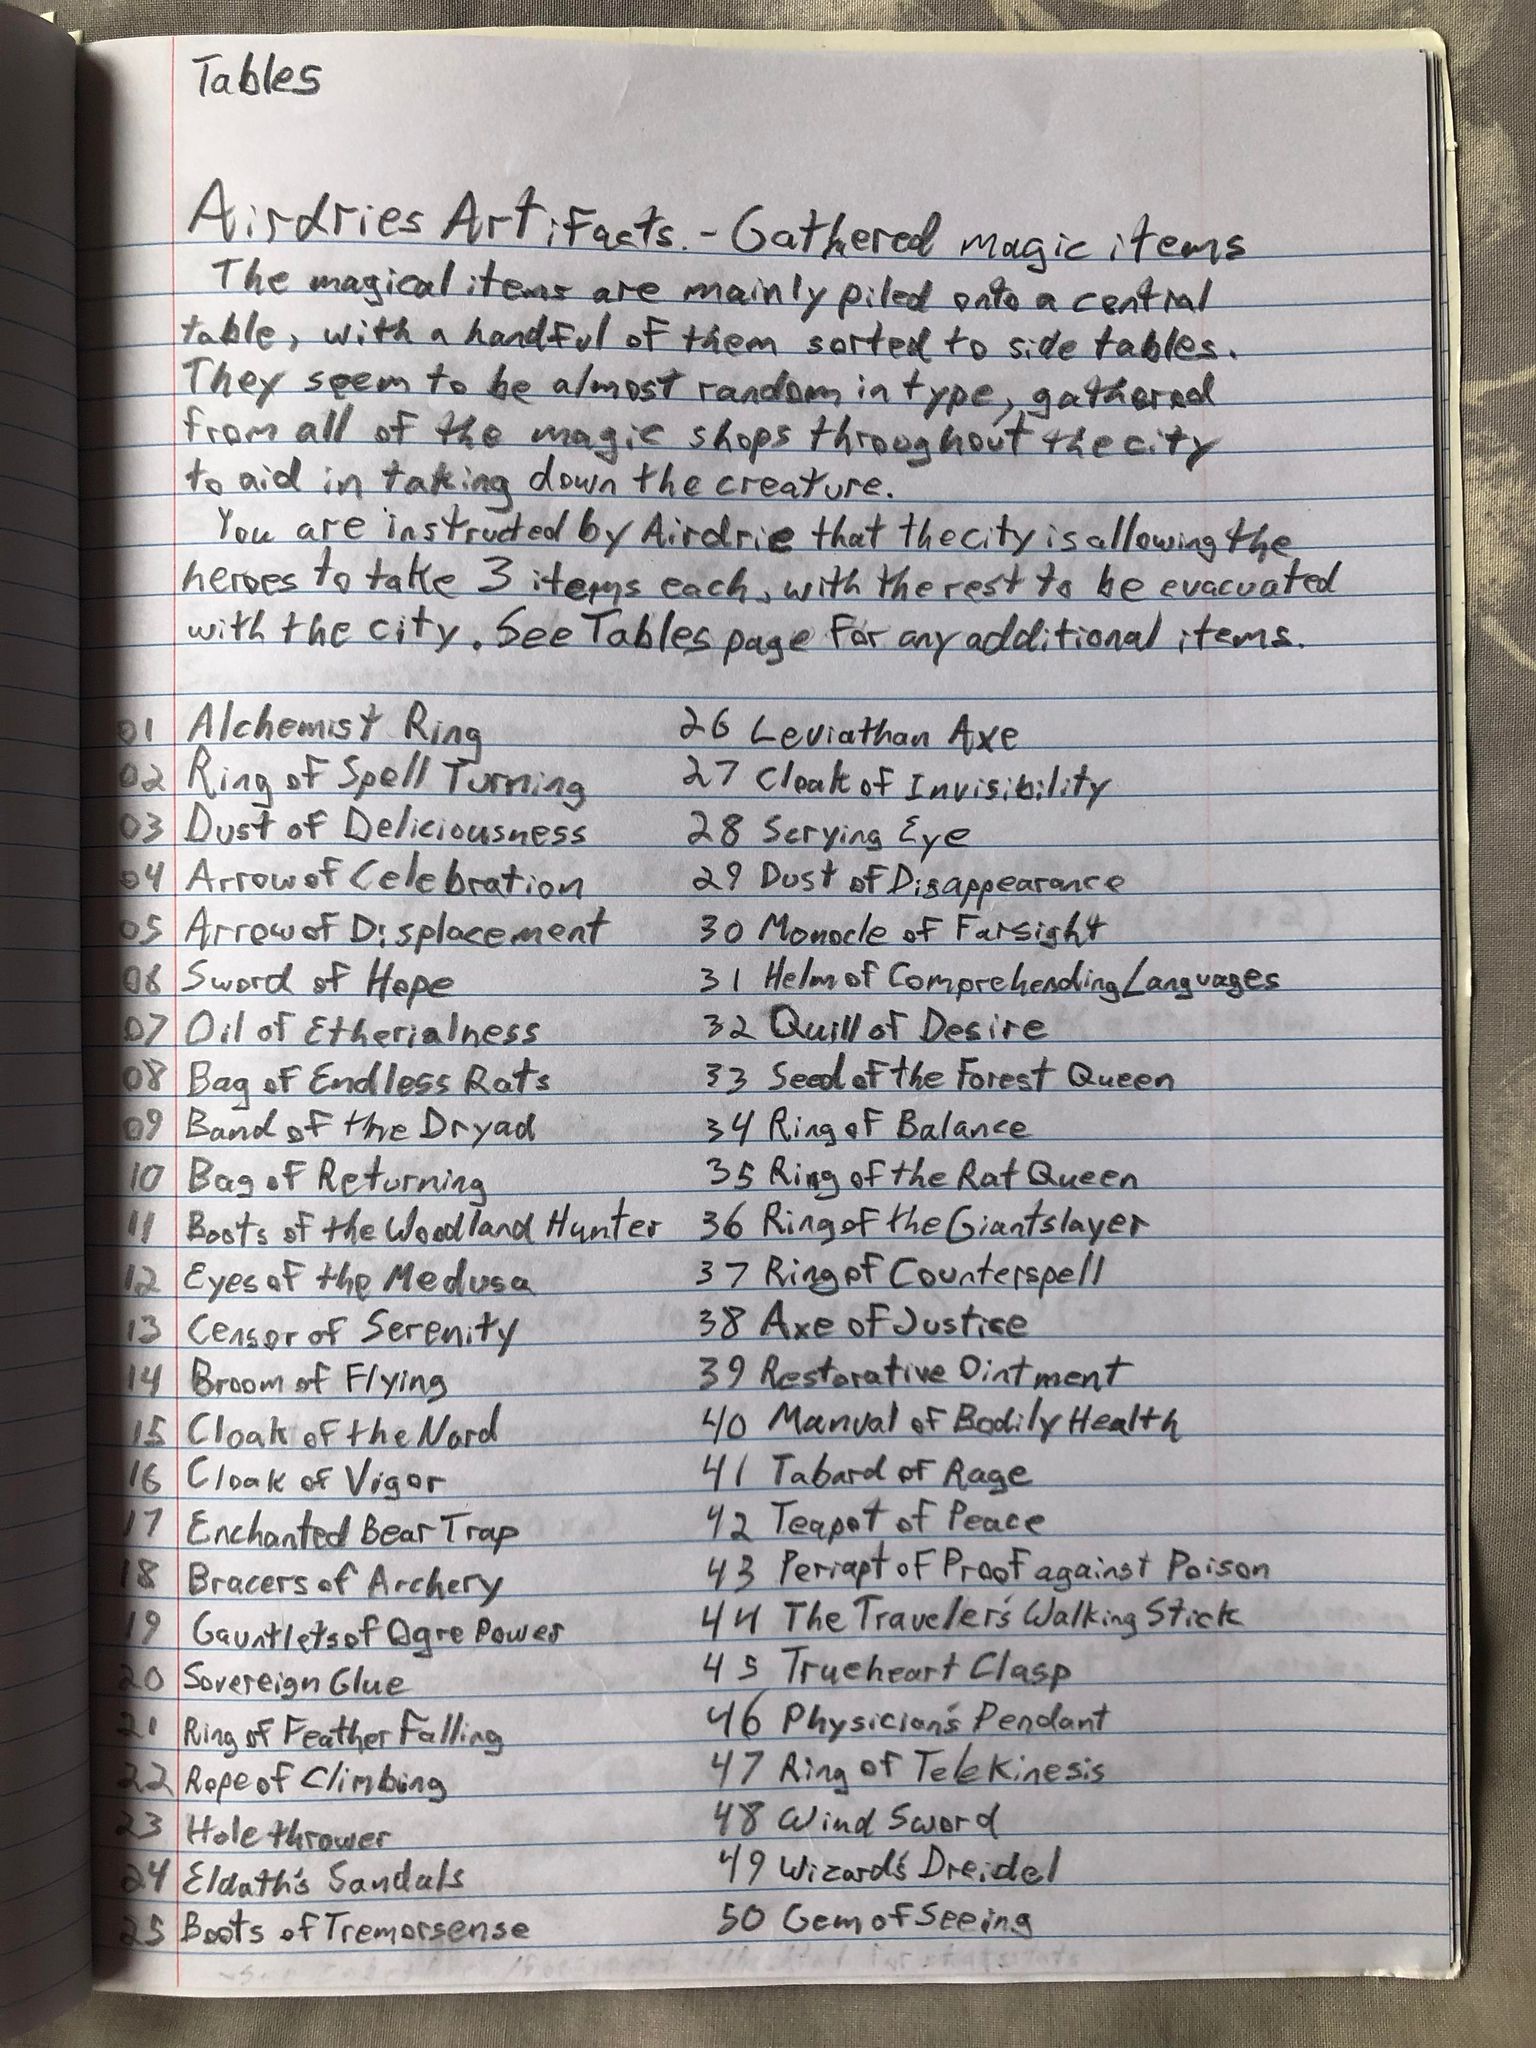 Tables
Airdries Artifacts. - Gathered magic items
The magical items are mainly piled onto a central
table, with a handful of them sorted to side tables.
They seem to be almost random in type, gathered
from all of the magic shops throughout the city
to aid in taking down the creature.
You are instructed by Airdrie that the city is allowing the
heroes to take 3 items each, with the rest to be evacuated
with the city. See Tables page for any additional items.
01 Alchemist Ring
02 Ring of Spell Turning
03 Dust of Deliciousness
04 Arrow of Celebration
05 Arrow of Displacement
06 Sword of Hope
07 Oil of Etherialness
08 Bag of Endless Rats
09 Band of the Dryad
10 Bag of Returning
11 Boots of the Woodland Hunter
12 Eyes of the Medusa
13 Censor of Serenity
14 Broom of Flying
15 Cloak of the Nord
16 Cloak of Vigor
17 Enchanted Bear Trap
18 Bracers of Archery
19 Gauntlets of Ogre Power
20 Sovereign Glue
21 Ring of Feather Falling
22 Rope of Climbing
23 Hole thrower
24 Eldath's Sandals
25 Boots of Tremorsense
26 Leviathan Axe
27 Cloak of Invisibility
28 Scrying Eye
29 Dust of Disappearance
30 Monocle of Farsight
31 Helm of Comprehending Languages
32 Quill of Desire
33 Seed of the Forest Queen
34 Ring of Balance
35 Ring of the Rat Queen
36 Ring of the Giantslayer
37 Ring of Counterspell
38 Axe of Justice
39 Restorative Ointment
40 Manual of Bodily Health
41 Tabard of Rage
42 Teapot of Peace
43 Periapt of Proof against Poison
44 The Traveler's Walking Stick
45 Trueheart Clasp
46 Physician's Pendant
47 Ring of Telekinesis
48 Wind Sword
49 Wizard's Dreidel
50 Gem of Seeing